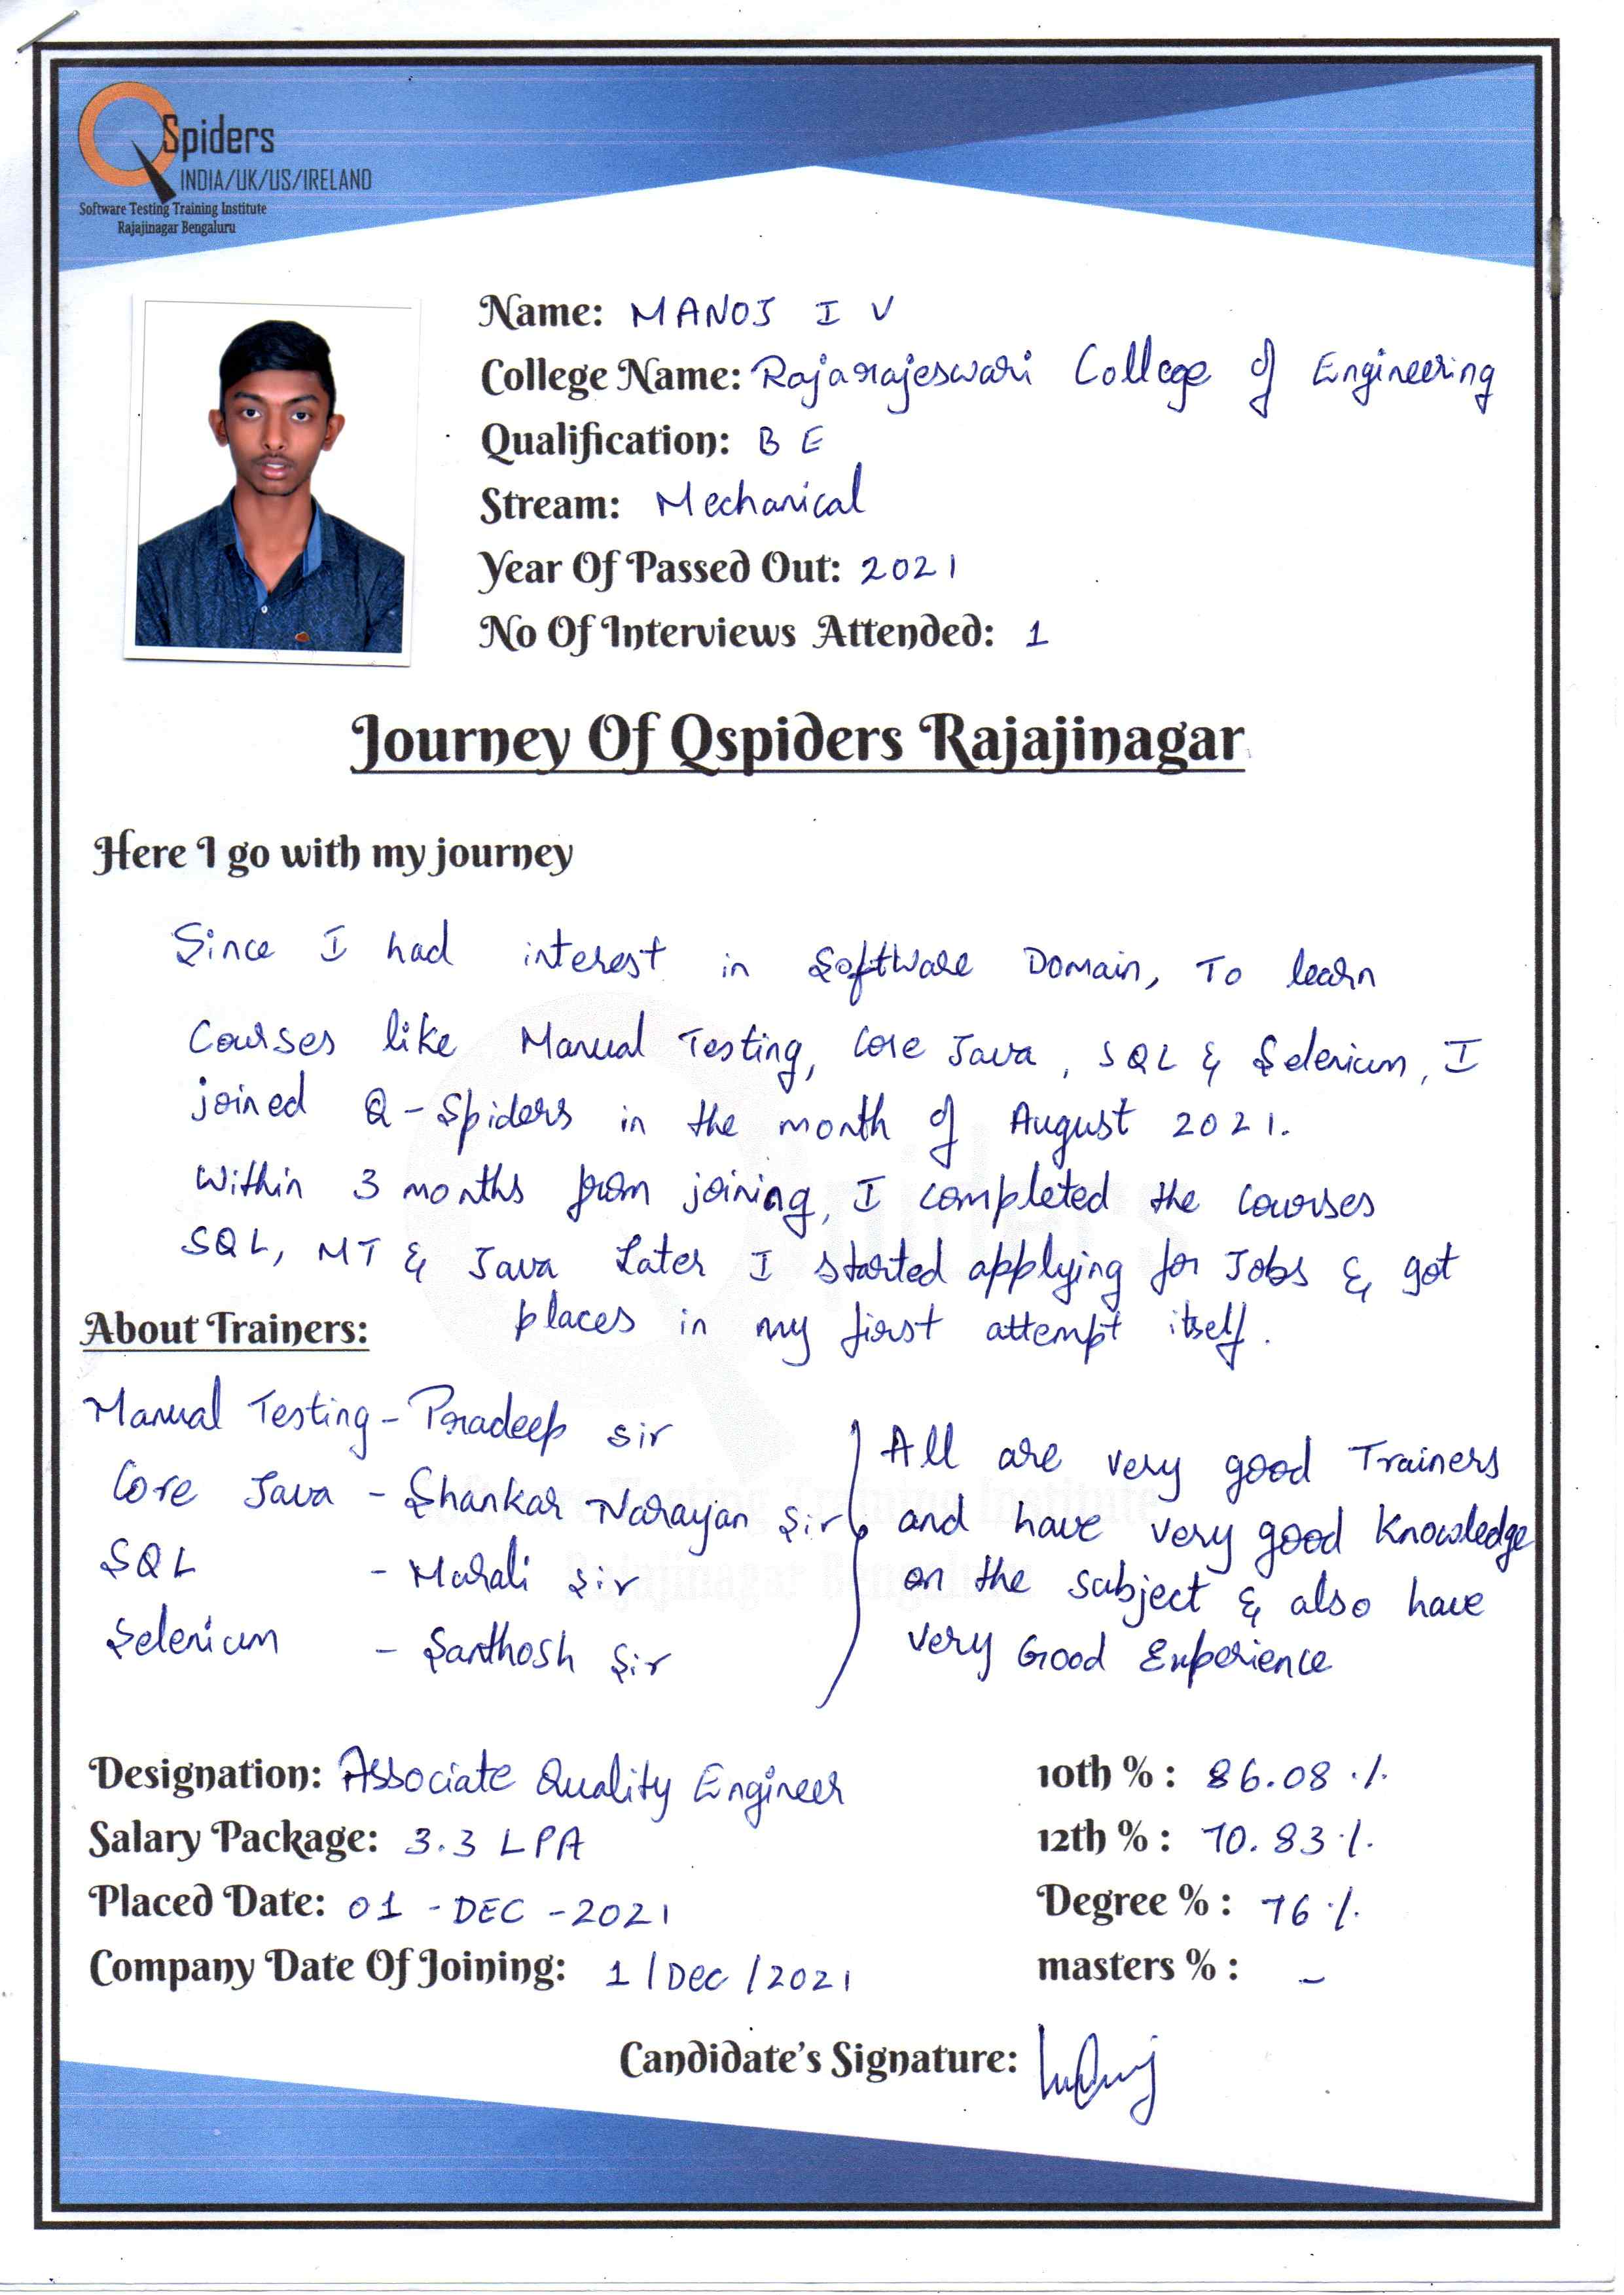 QSpiders
INDIA/UK/US/IRELAND
Software Testing Training Institute
Rajajinagar Bengaluru
Name: MANOJ I V
College Name: Rajarajeswari College of Engineering
Qualification: B E
Stream: Mechanical
Year Of Passed Out: 2021
No Of Interviews Attended: 1
Journey Of Qspiders Rajajinagar
Here I go with my journey
Since I had interest in Software Domain, To learn
Courses like Manual Testing, Core Java, SQL & Selenium, I
joined Q-Spiders in the month of August 2021.
Within 3 months from joining, I completed the courses
SQL, MT & Java Later I started applying for Jobs & got
places in my first attempt itself.
About Trainers:
Manual Testing - Pradeep sir
Core Java - Shankar Narayan Sir
SQL - Murali Sir
Selenium - Santhosh Sir
All are very good Trainers
and have very good Knowledge
on the subject & also have
very Good Experience
Designation: Associate Quality Engineer
Salary Package: 3.3 LPA
Placed Date: 01 - DEC - 2021
Company Date Of Joining: 1/Dec/2021
10th % : 86.08 %
12th % : 70.83 %
Degree % : 76 %
masters % : -
Candidate's Signature:
Spiders
Software Testing Training Institute
Rajajinagar Bengaluru